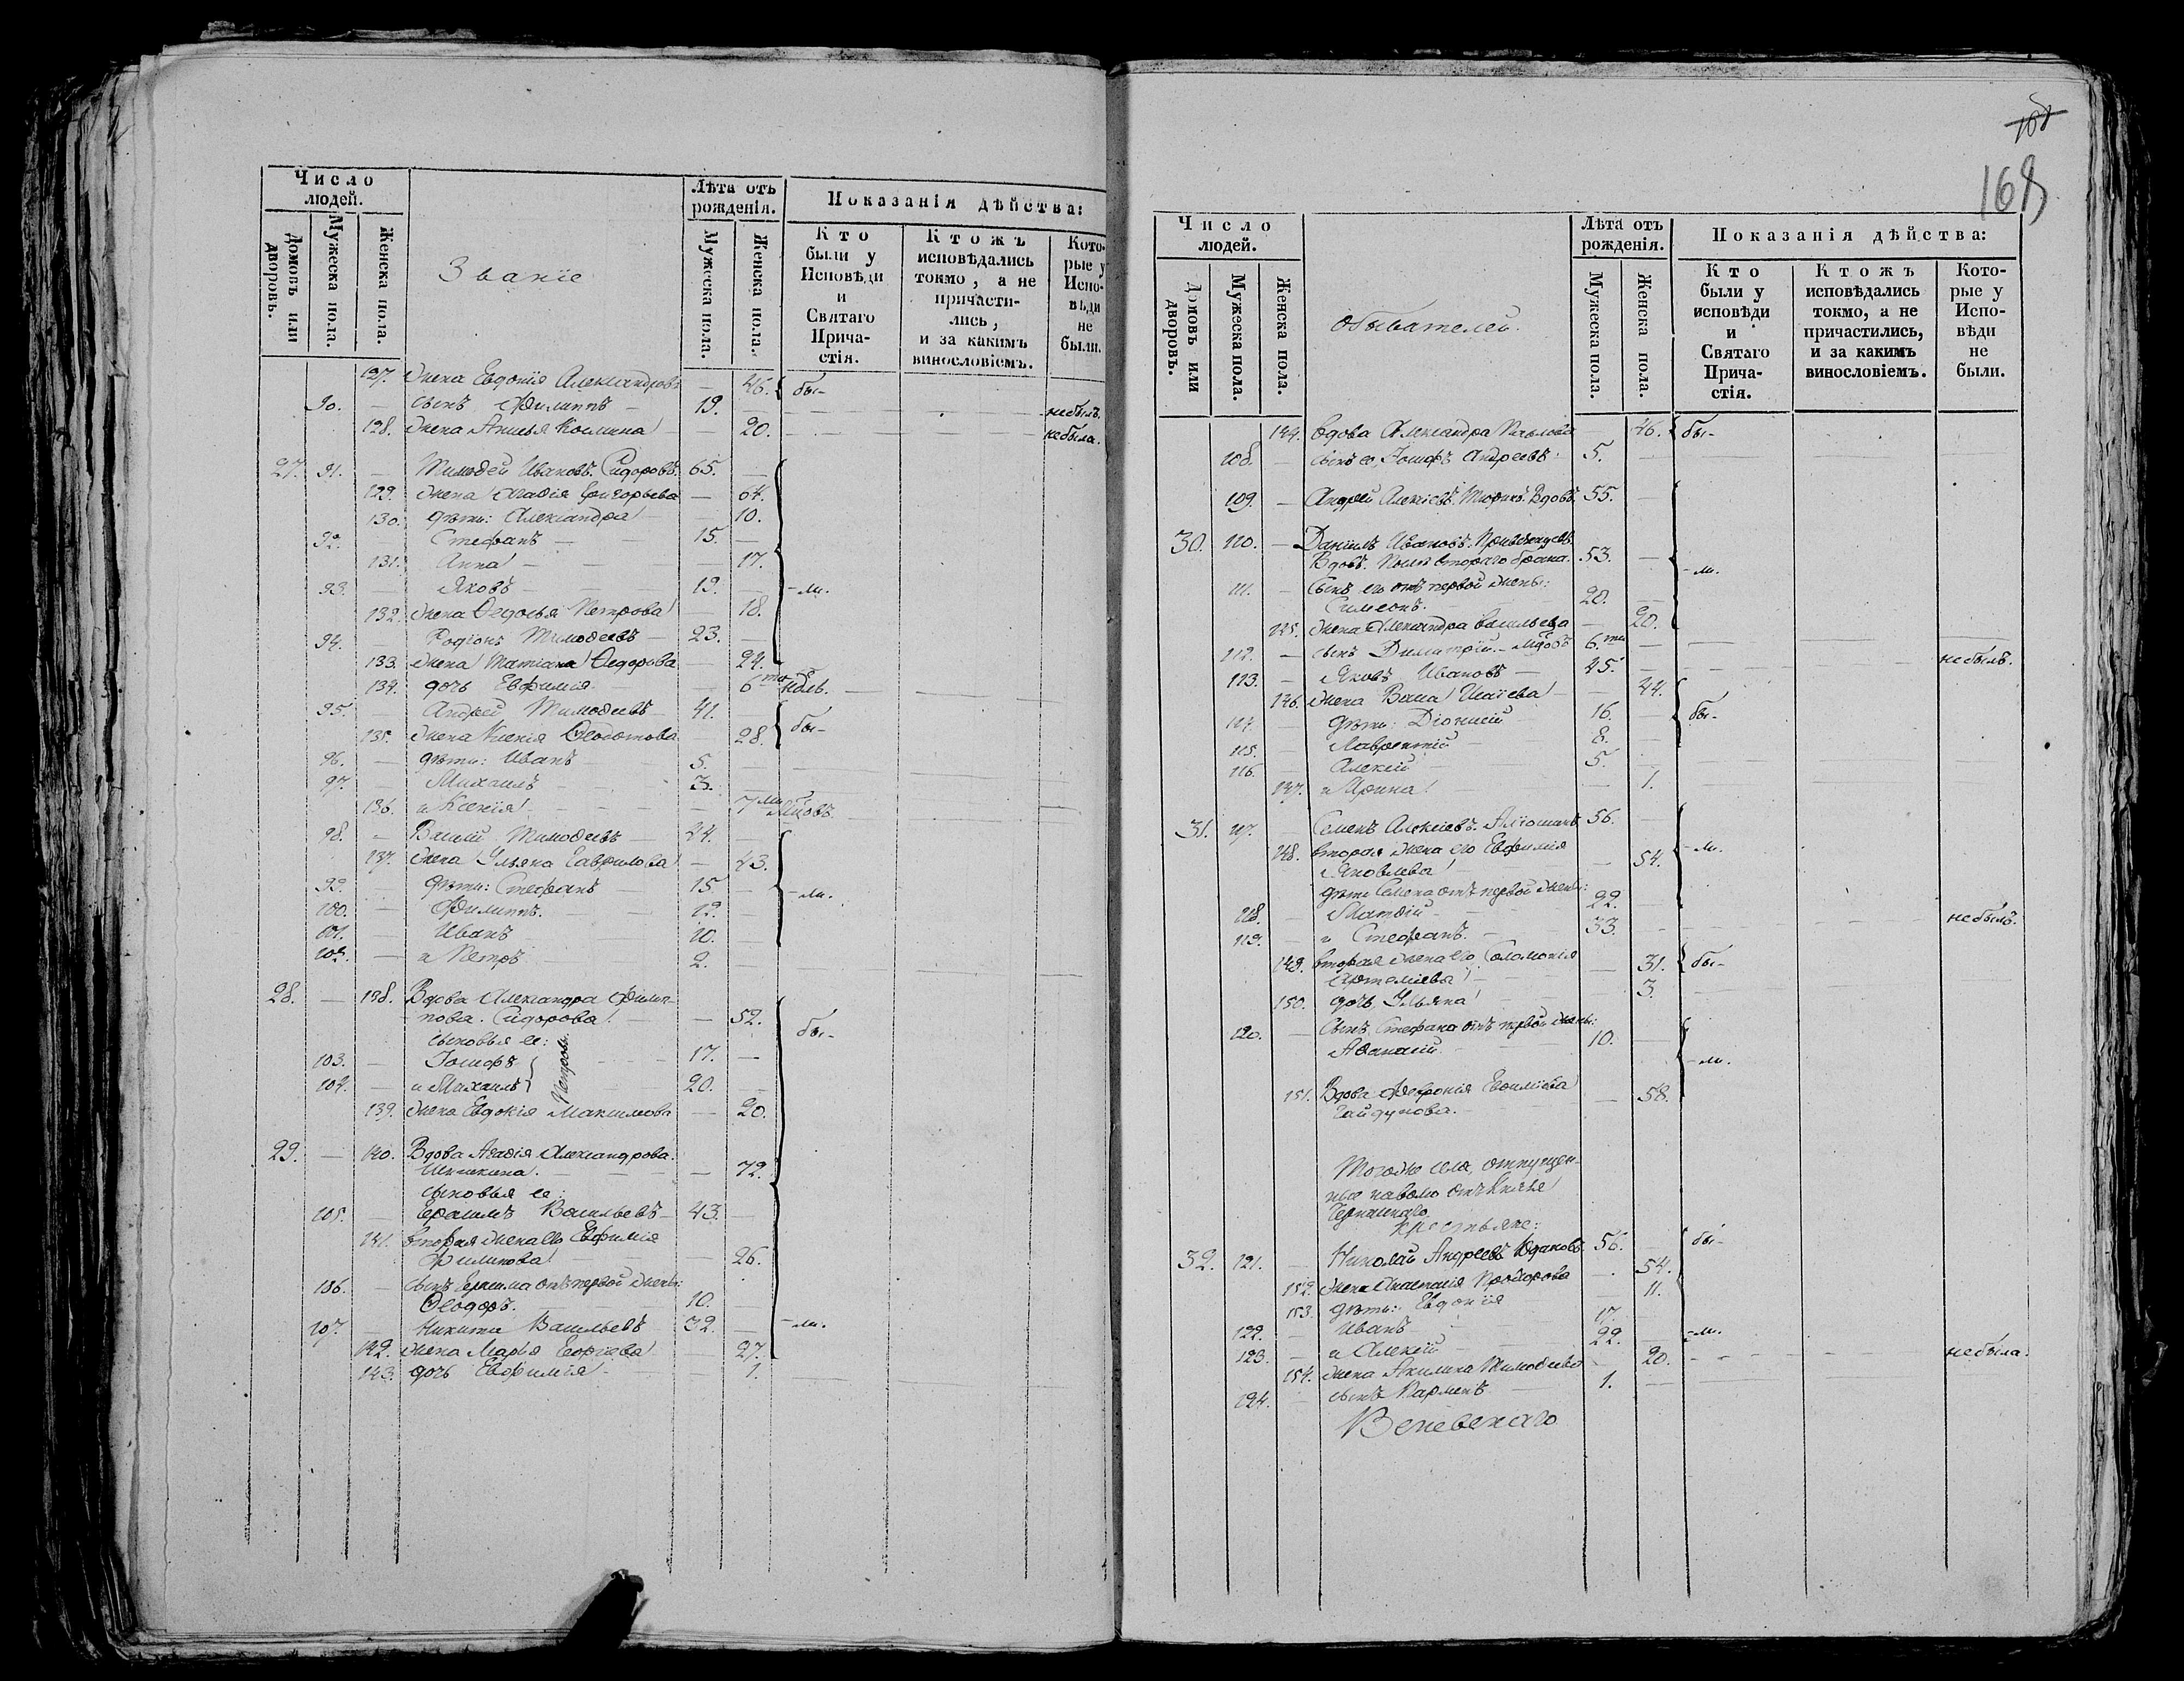 Число людей.
Домовъ или дворовъ.
Мужеска пола.
Женска пола.
Званіе
Лѣта отъ рожденія.
Мужеска пола.
Женска пола.
Показанія дѣйства:
Кто были у Исповѣди и Святаго Причастія.
Ктожъ исповѣдались токмо, а не причастились, и за какимъ винословіемъ.
Которые у Исповѣди не были.
127. жена Евдокія Александрова — 46. бы-
90. — сынъ Филиппъ — 19. — небылъ.
128. жена Анисья Космина — 20. — небыла.
27. 91. — Тимоѳей Ивановъ Сидоровъ. 65. —
129. жена Агаѳія Григорьева — 64.
130. дѣти: Александра — 10.
92. — Стефанъ — 15. —
131. Анна — 17.
93. — Яковъ — 19. — -ли.
132. жена Ѳедосья Петрова — 18.
94. — Родіонъ Тимоѳеевъ — 23. —
133. жена Татіана Ѳедорова — 24.
134. дочь Евфимія — 6
95. — Андрей Тимоѳеевъ 41. —
135. жена Ксенія Ѳедотова — 28. бы-
96. — дѣти: Иванъ 5. —
97. Михаилъ 3.
136. и Ксенія — 7
98. — Василій Тимоѳеевъ — 24. —
137. жена Ульяна Гаврилова — 43.
99. — дѣти: Стефанъ — 15. — -ли.
100. — Филиппъ. 12. —
101. — Иванъ 10. —
102. — и Петръ 2. —
28. — 138. Вдова Александра Филип-
пова Сидорова. — 52. бы-
сыновья ее:
103. — Іосифъ 17. —
104. — и Михаилъ 20. —
Петровы
139. жена Евдокія Максимова — 20.
29. — 140. Вдова Агаѳія Александрова
Шишкина. — 72.
сыновья ее:
105. — Герасимъ Васильевъ 43. —
141. вторая жена его Евфимія
Филипова — 26.
106. — сынъ Герасима отъ первой жены:
Ѳеодоръ. 10.
107. — Никита Васильевъ 32. — -ли.
142. жена Марья Георгіева — 27.
143. дочь Евфимія — 1.
168
Число людей.
Домовъ или дворовъ.
Мужеска пола.
Женска пола.
обывателей.
Лѣта отъ рожденія.
Мужеска пола.
Женска пола.
Показанія дѣйства:
Кто были у исповѣди и Святаго Причастія.
Ктожъ исповѣдались токмо, а не причастились, и за какимъ винословіемъ.
Которые у Исповѣди не были.
144. вдова Александра Павлова — 46. бы-
108. — сынъ ее Іосифъ Андреевъ 5. —
109. — Андрей Алексіевъ Вдовъ. 55. —
30. 110. — Даніилъ Ивановъ
Вдовъ. Послѣ втораго брака. 53. — -ли.
111. — Сынъ его отъ первой жены:
Симеонъ. 20. —
145. жена Александра Васильева — 20.
112. — сынъ Димитрій 6
113. — Яковъ Ивановъ 45. — небылъ.
146. жена Васса Исаіева — 44.
114. — дѣти: Діонисій 16. — бы-
115. — Лаврентій 8. —
116. — Алексій 5. —
147. и Ирина — 1.
31. 117. — Семенъ Алексіевъ Алюшинъ 56. —
148. вторая жена его Евфимія — -ли.
Яковлева — 54.
дѣти Семена отъ первой жены:
118. — Матѳій 22. —
119. — и Стефанъ. 33. — небылъ.
149. вторая жена его Соломонія — 31. бы-
Артеміева
150. дочь Ульяна 3.
120. — Сынъ Стефана отъ первой жены:
Аѳанасій 10. — -ли.
151. Вдова Февронія Евсиіева — 58.
Гайдукова.
Того же села, отпущен-
ные на волю отъ Князя
Черкаскаго
крестьяне:
32. 121. — Николай Андреевъ 56. — бы-
152. жена Анастасія Прохорова — 54.
153. дѣти: Евдокія — 11.
122. — Иванъ 17. —
123. — и Алексій 22. — -ли.
154. жена Акилина Тимоѳеева — 20. — небыла.
124. — сынъ Парменъ 1. —
Веневскаго